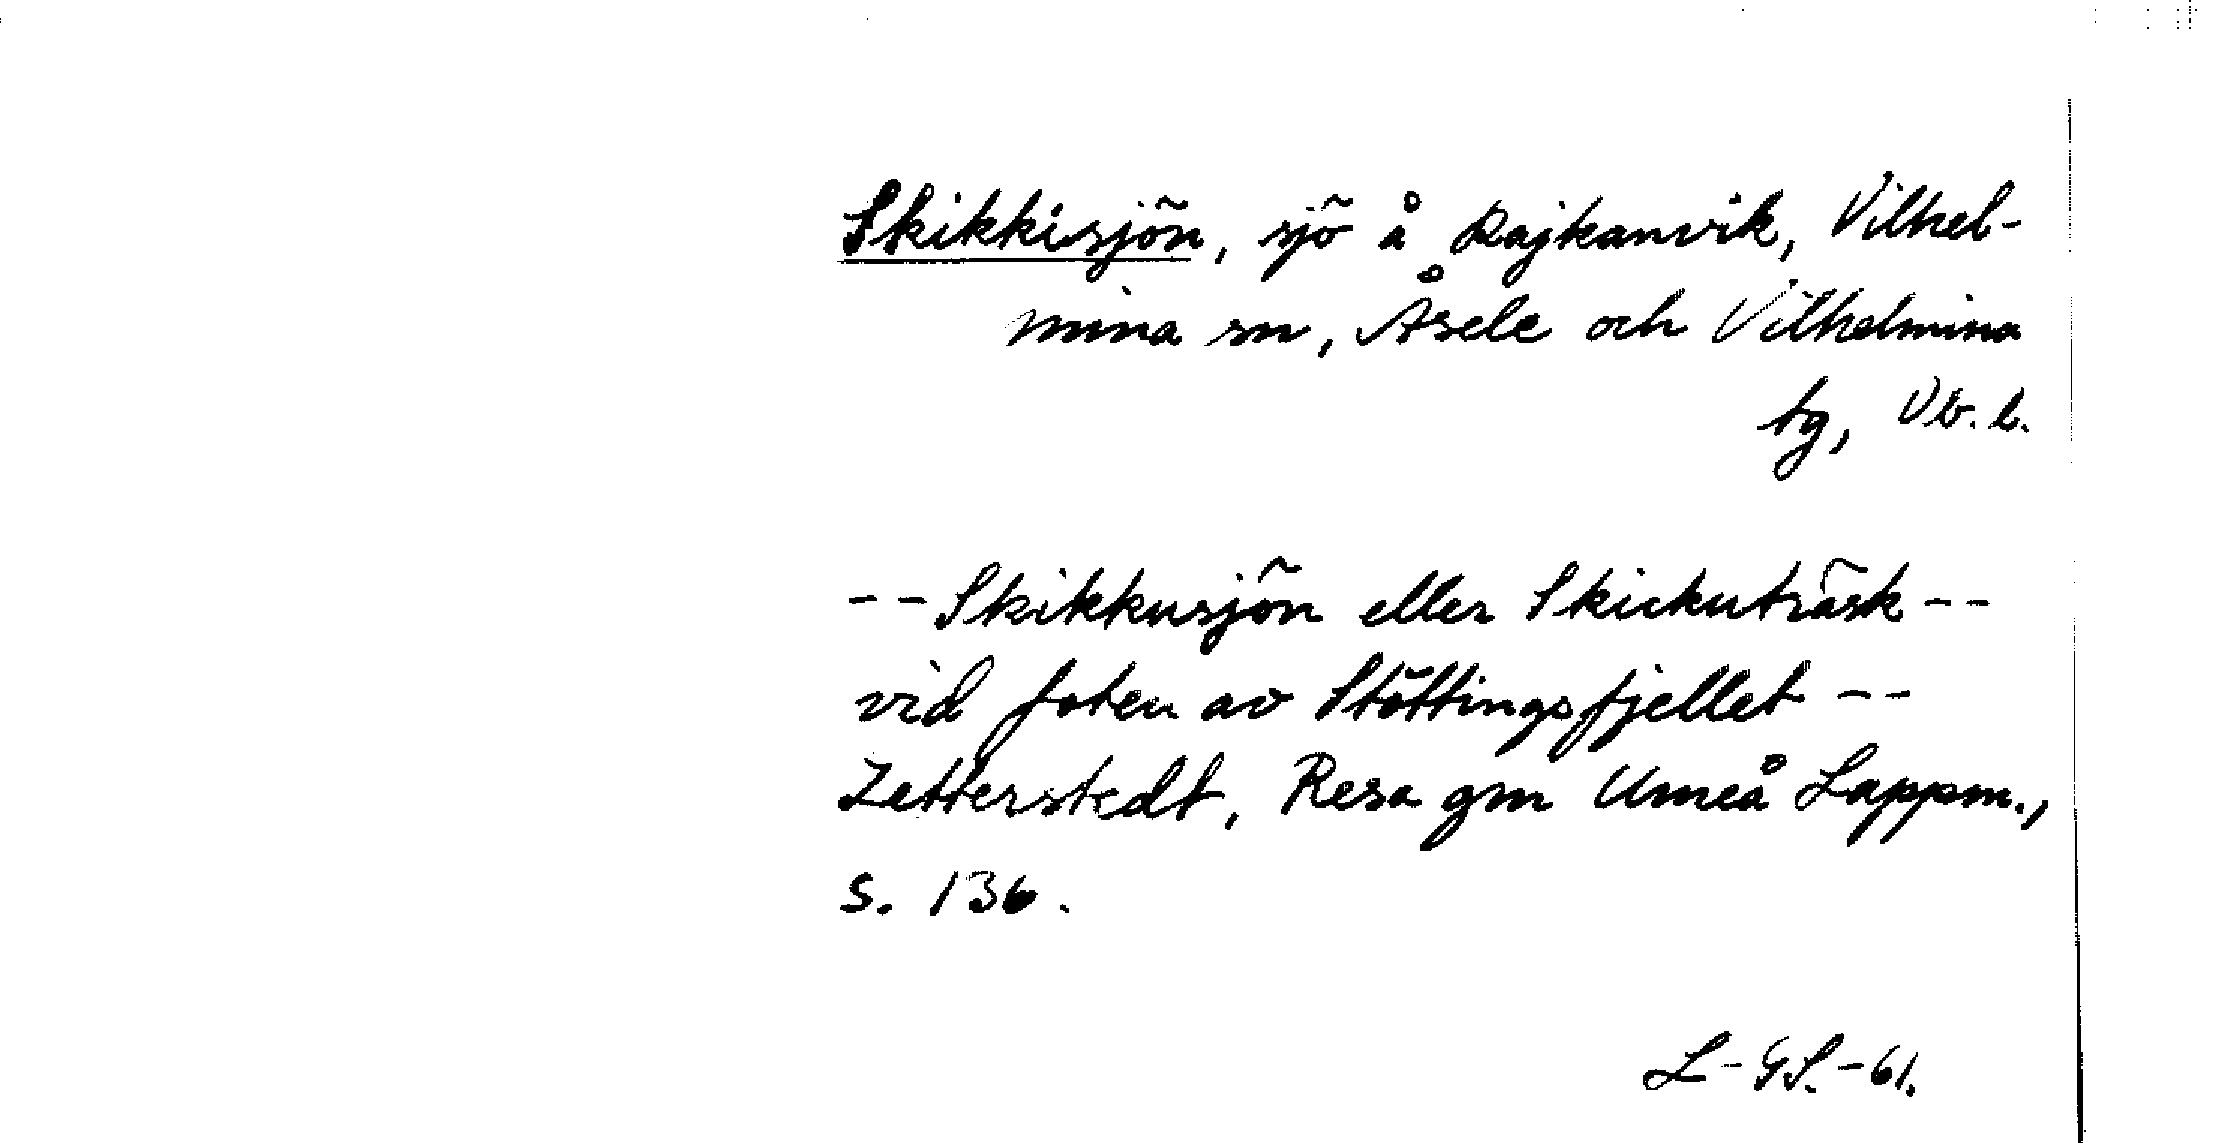 Skikkisjön, sjö å Rajkanvik, Vilhel-
mina sn, Åsele och Vilhelmina
tg, Vb. l.
-- Skikkusjön eller Skickuträsk --
vid foten av Stöttingsfjellet --
Zetterstedt, Resa gm Umeå Lappm.,
s. 136.
L-GS.-61.